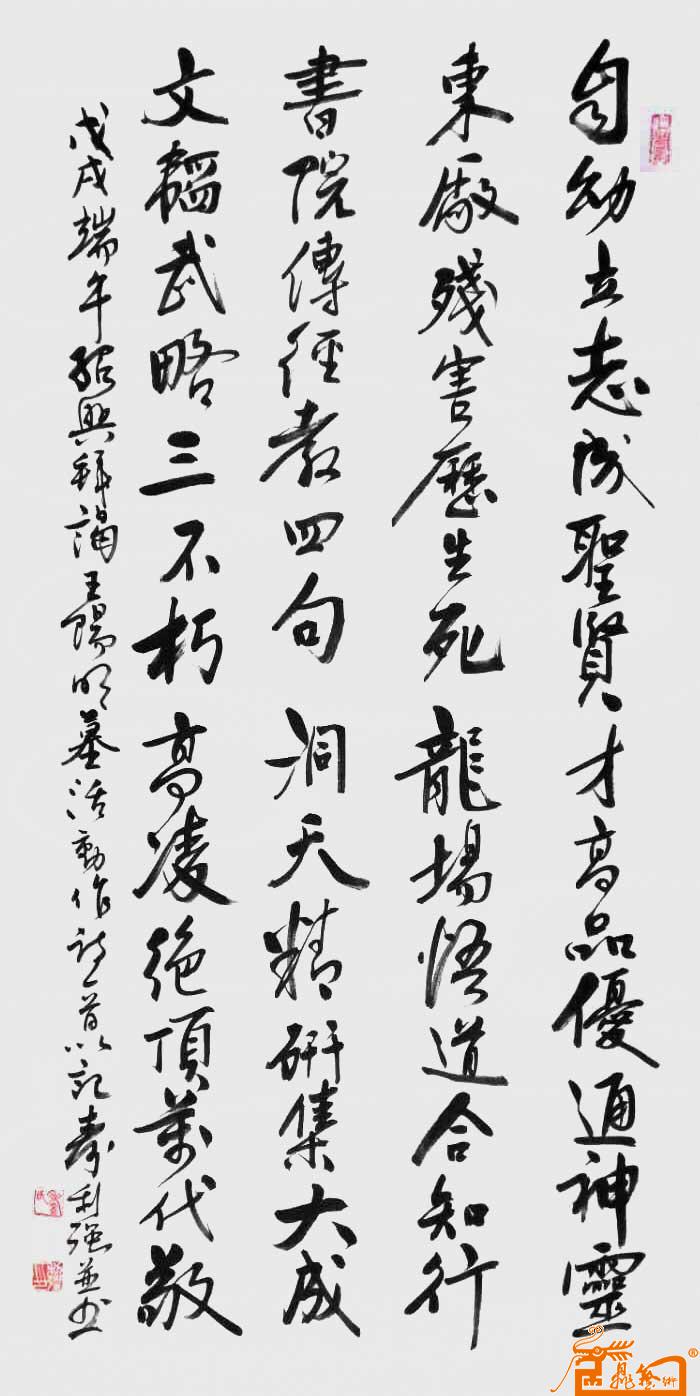 自幼立志成聖賢才高品優通神靈
東廠殘害歷生死龍場悟道合知行
書院傳經教四句洞天精研集大成
文韜武略三不朽高凌絕頂萬代敬
戊戌端午紹興拜謁王陽明墓活動作詩一首以記壽利強並書